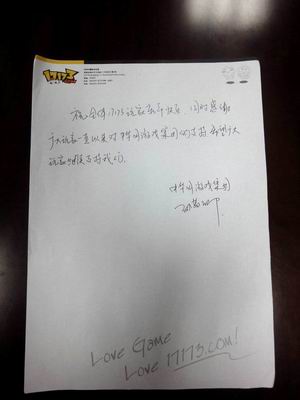 17173
祝全体17173玩家新年快乐,同时感谢
广大玩家一直以来对中华网游戏集团的支持,希望广大
玩家继续支持我们。
中华网游戏集团
Love Game
Love 17173.com!